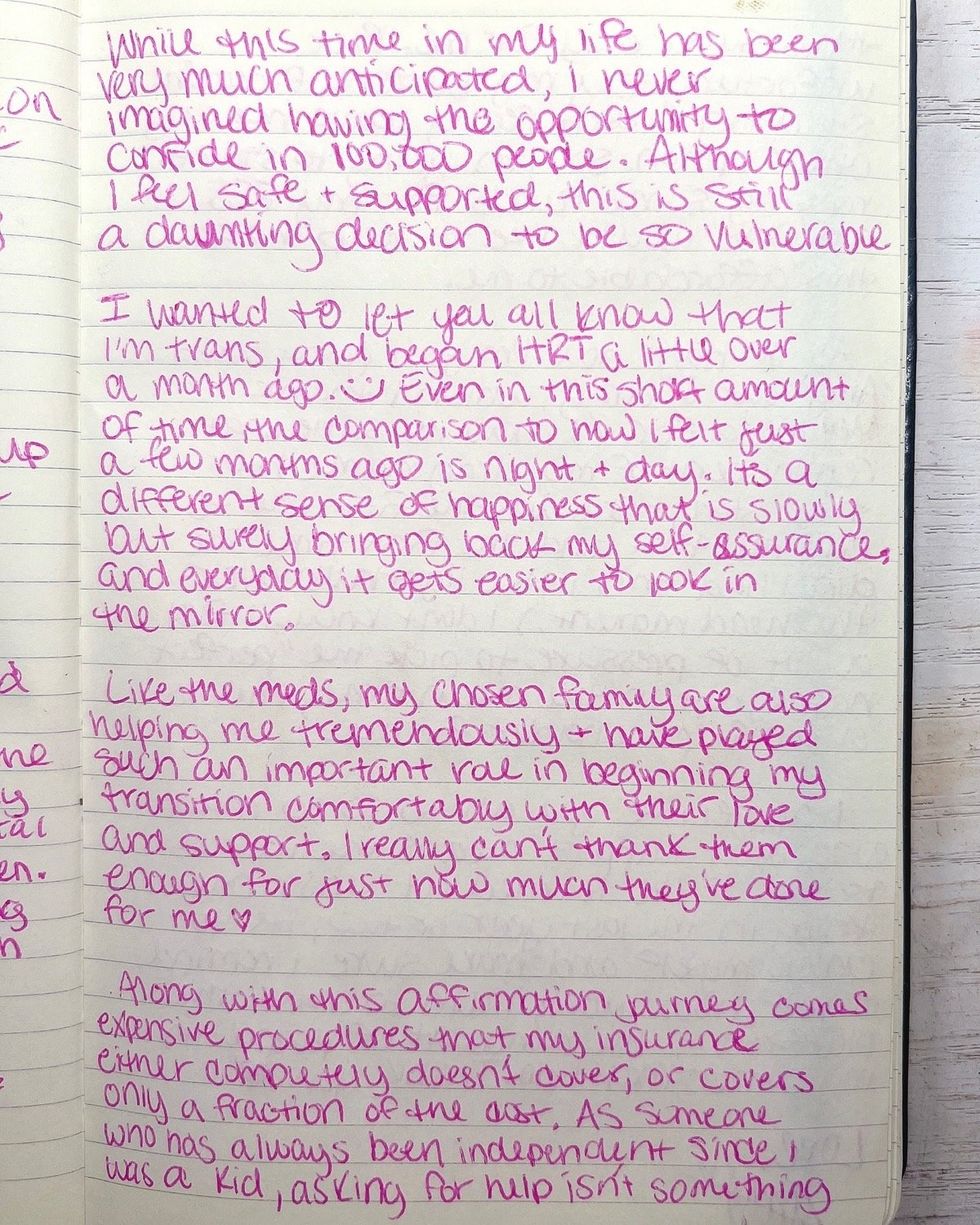 While this time in my life has been
very much anticipated, I never
imagined having the opportunity to
confide in 100,000 people. Although
I feel safe + supported, this is still
a daunting decision to be so vulnerable
I wanted to let you all know that
I'm trans, and began HRT a little over
a month ago. :) Even in this short amount
of time, the comparison to how I felt just
a few months ago is night + day. It's a
different sense of happiness that is slowly
but surely bringing back my self-assurance,
and everyday it gets easier to look in
the mirror.
Like the meds, my chosen family are also
helping me tremendously + have played
such an important role in beginning my
transition comfortably with their love
and support. I really can't thank them
enough for just how much they've done
for me ♥
Along with this affirmation journey comes
expensive procedures that my insurance
either completely doesn't cover, or covers
only a fraction of the cost. As someone
who has always been independent since I
was a kid, asking for help isn't something
on
up
me
en.